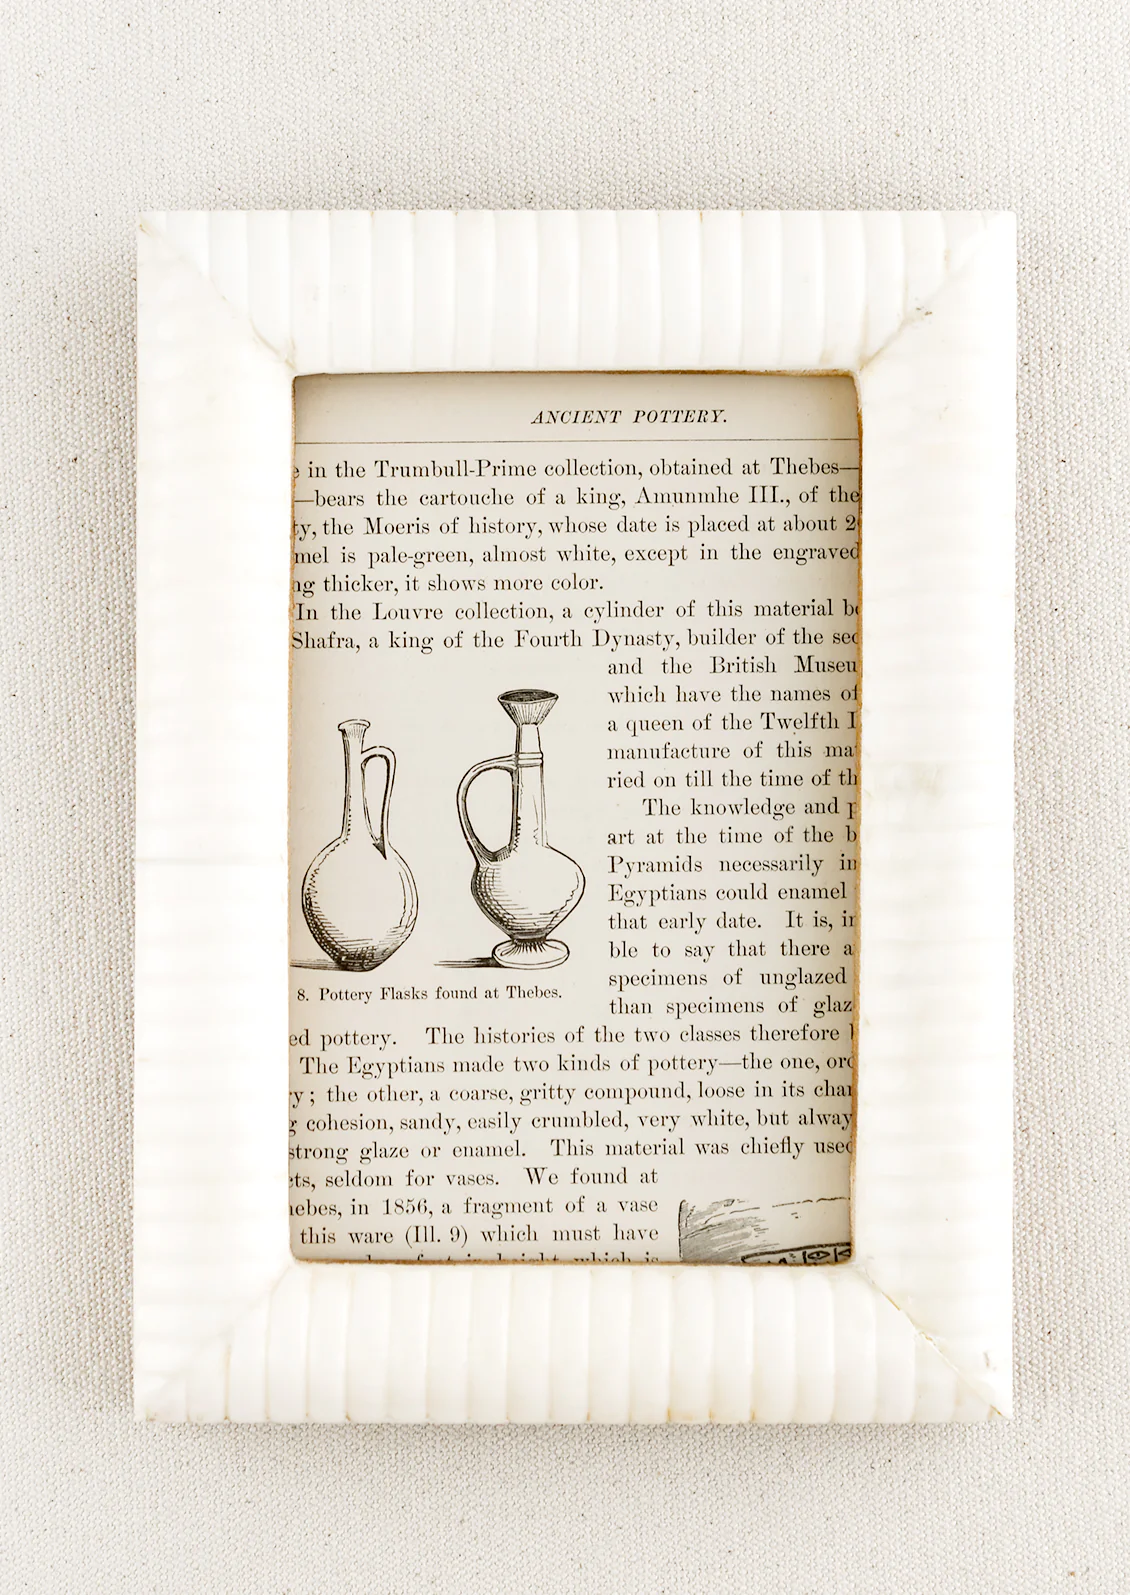 ANCIENT POTTERY.
in the Trumbull-Prime collection, obtained at Thebes—
—bears the cartouche of a king, Amunmhe III., of the
the Moeris of history, whose date is placed at about
is pale-green, almost white, except in the engraved
thicker, it shows more color.
In the Louvre collection, a cylinder of this material
Shafra, a king of the Fourth Dynasty, builder of the
and the British
which have the names
a queen of the Twelfth
manufacture of this
ried on till the time of
The knowledge and
art at the time of the
Pyramids necessarily
Egyptians could enamel
that early date. It is,
ble to say that there
specimens of unglazed
than specimens of
8. Pottery Flasks found at Thebes.
ed pottery. The histories of the two classes therefore
The Egyptians made two kinds of pottery—the one,
the other, a coarse, gritty compound, loose in its
cohesion, sandy, easily crumbled, very white, but
strong glaze or enamel. This material was chiefly used
seldom for vases. We found at
in 1856, a fragment of a vase
this ware (Ill. 9) which must have